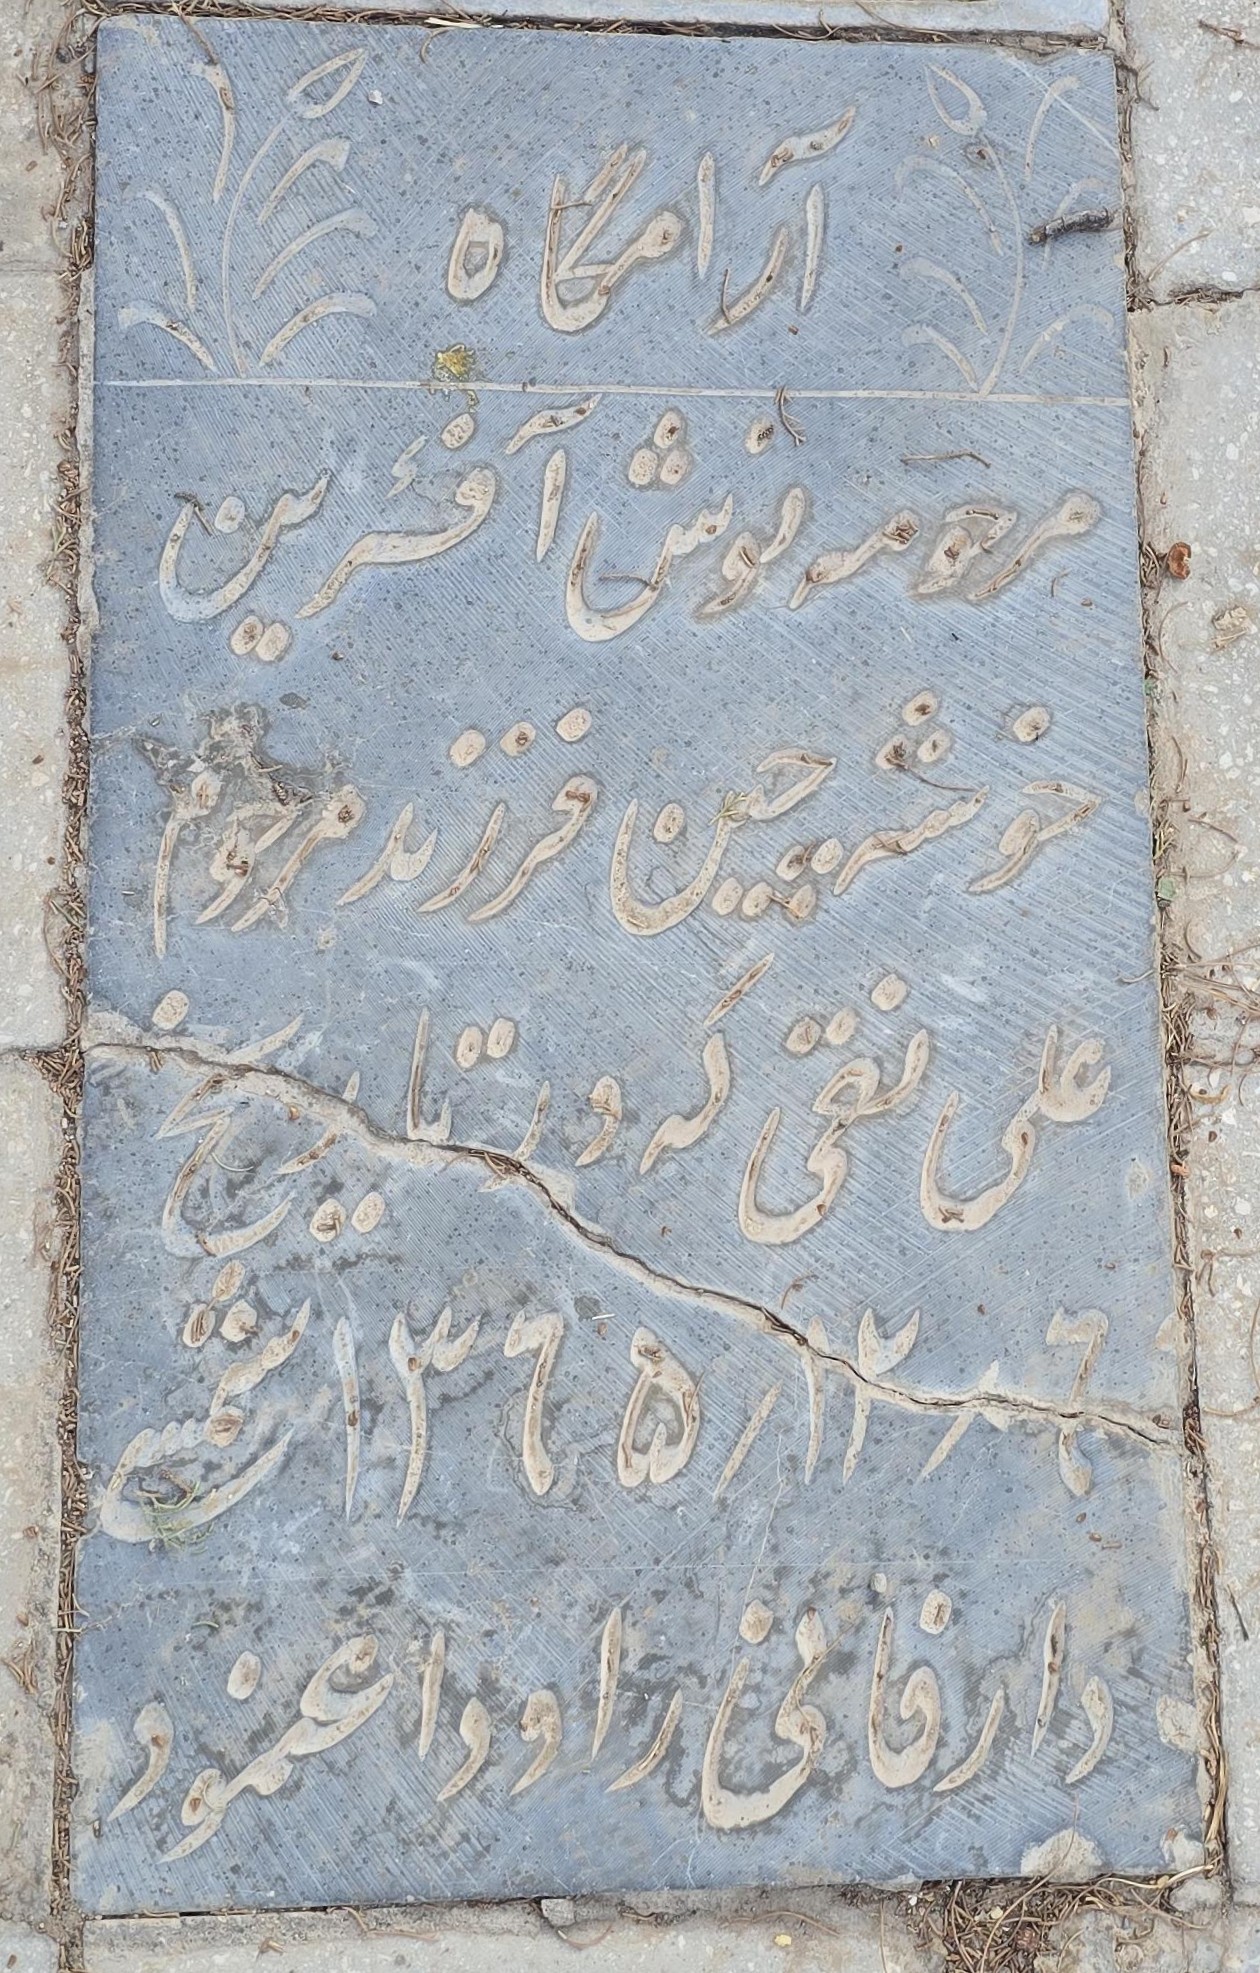 آرامگاه
مرحومه نوش آفرین
خوشه چین فرزند مرحوم
علی نقی که در تاریخ
۶/۱۲/۱۳۶۵ شمسی
دار فانی را وداع نمود